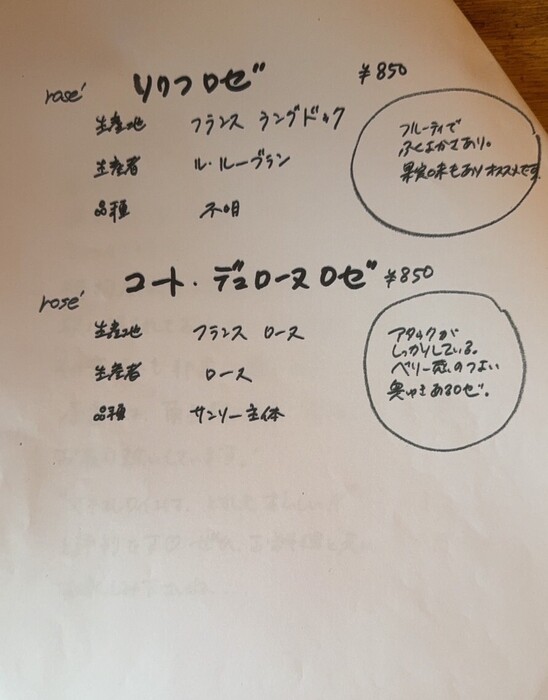 rosé リクフロゼ ¥850
生産地 フランス ラングドック
生産者 ル・ルーブラン
品種 不明
フルーティで
ふくよかさあり。
果実味もありオススメです
rosé コート・デュローヌ ロゼ ¥850
生産地 フランス ローヌ
生産者 ローヌ
品種 サンソー主体
アタックが
しっかりしている。
ベリー感のつよい
奥ゆきあるロゼ。